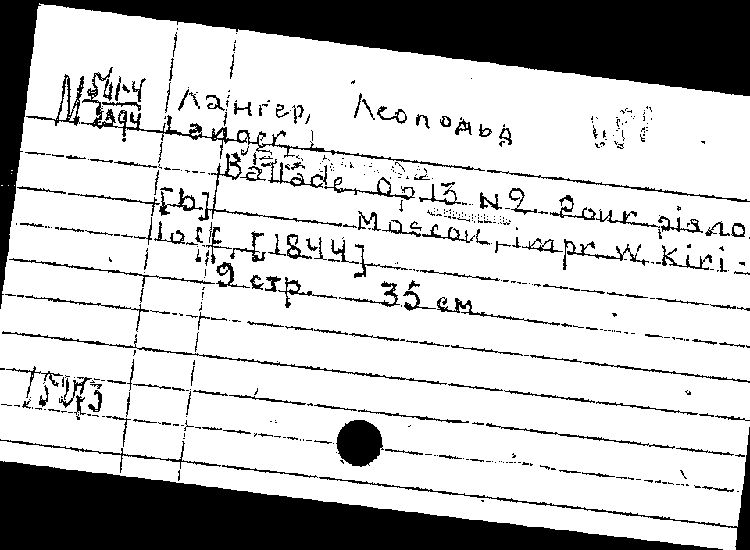 М 541-4
2894
Лангер, Леопольд
Langer, L.
Ballade. Op.13 N2 pour piano
[b] Moscou, impr. W. Kiri-
loff. [1844]
9 стр. 35 см.
15273